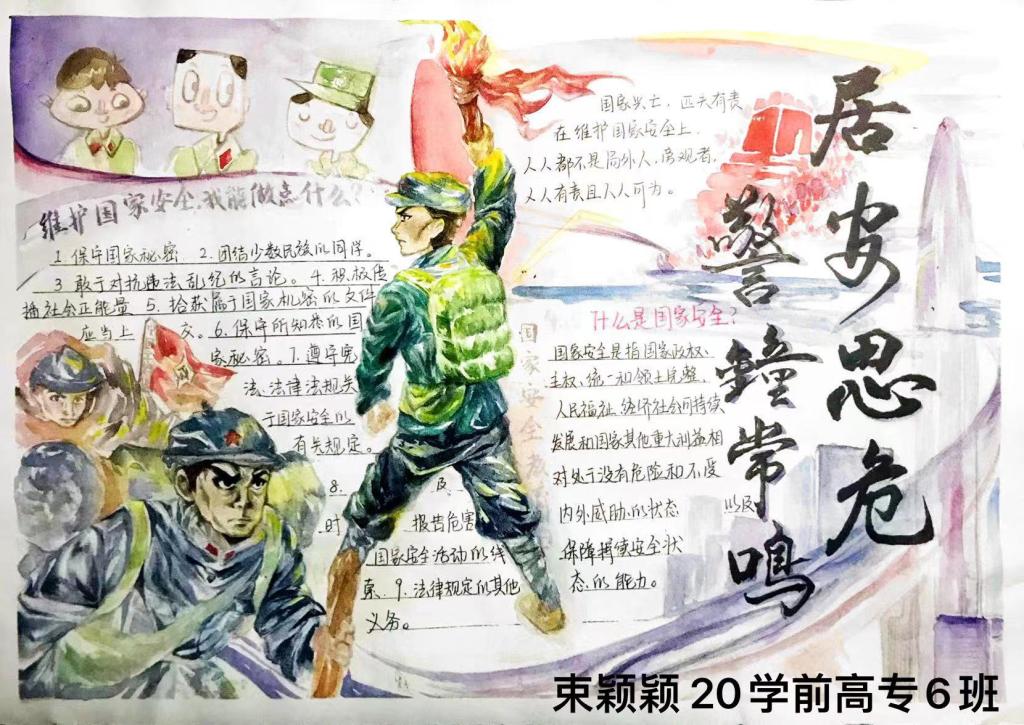 居安思危
警鐘常鳴
国家兴亡，匹夫有责
在维护国家安全上，
人人都不是局外人，旁观者，
人人有责且人人可为。
维护国家安全，我能做点什么？
1.保守国家秘密。2.团结少数民族的同学。
3.敢于对抗违法乱纪的言论。4.积极传
播社会正能量 5.拾获属于国家机密的文件
应当上交。6.保守所知悉的国
家秘密。7.遵守宪
法、法律法规关
于国家安全的
有关规定。
8.及
时报告危害
国家安全活动的线
索。9.法律规定的其他
义务。
国家安全
什么是国家安全？
国家安全是指国家政权、
主权、统一和领土完整、
人民福祉、经济社会可持续
发展和国家其他重大利益相
对处于没有危险和不受
内外威胁的状态 以及
保障持续安全状
态的能力。
束颖颖 20学前高专6班